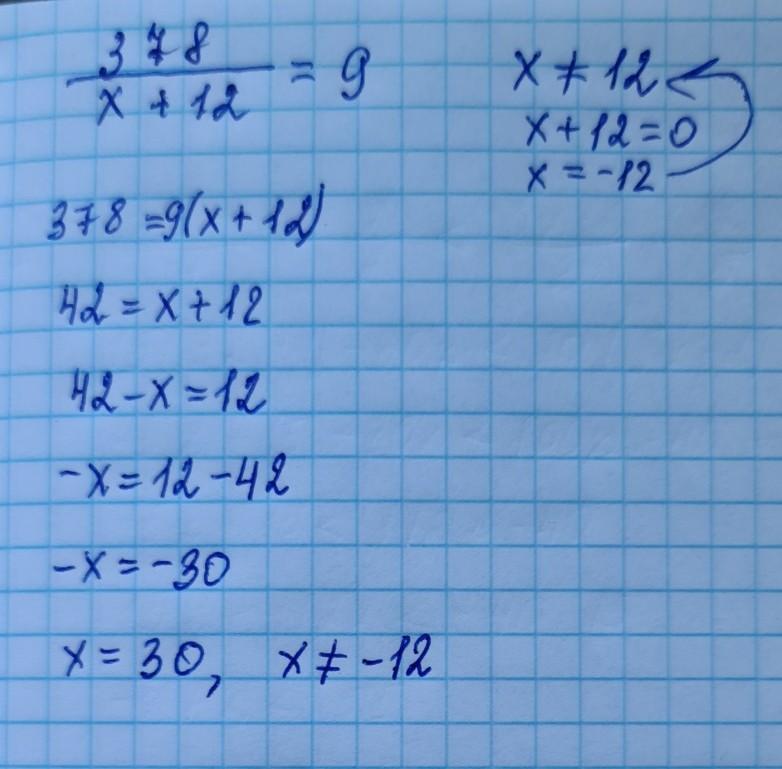 378
x + 12 = 9
378 = 9(x + 12)
42 = x + 12
42 - x = 12
-x = 12 - 42
-x = -30
x = 30, x ≠ -12
x ≠ 12
x + 12 = 0
x = -12